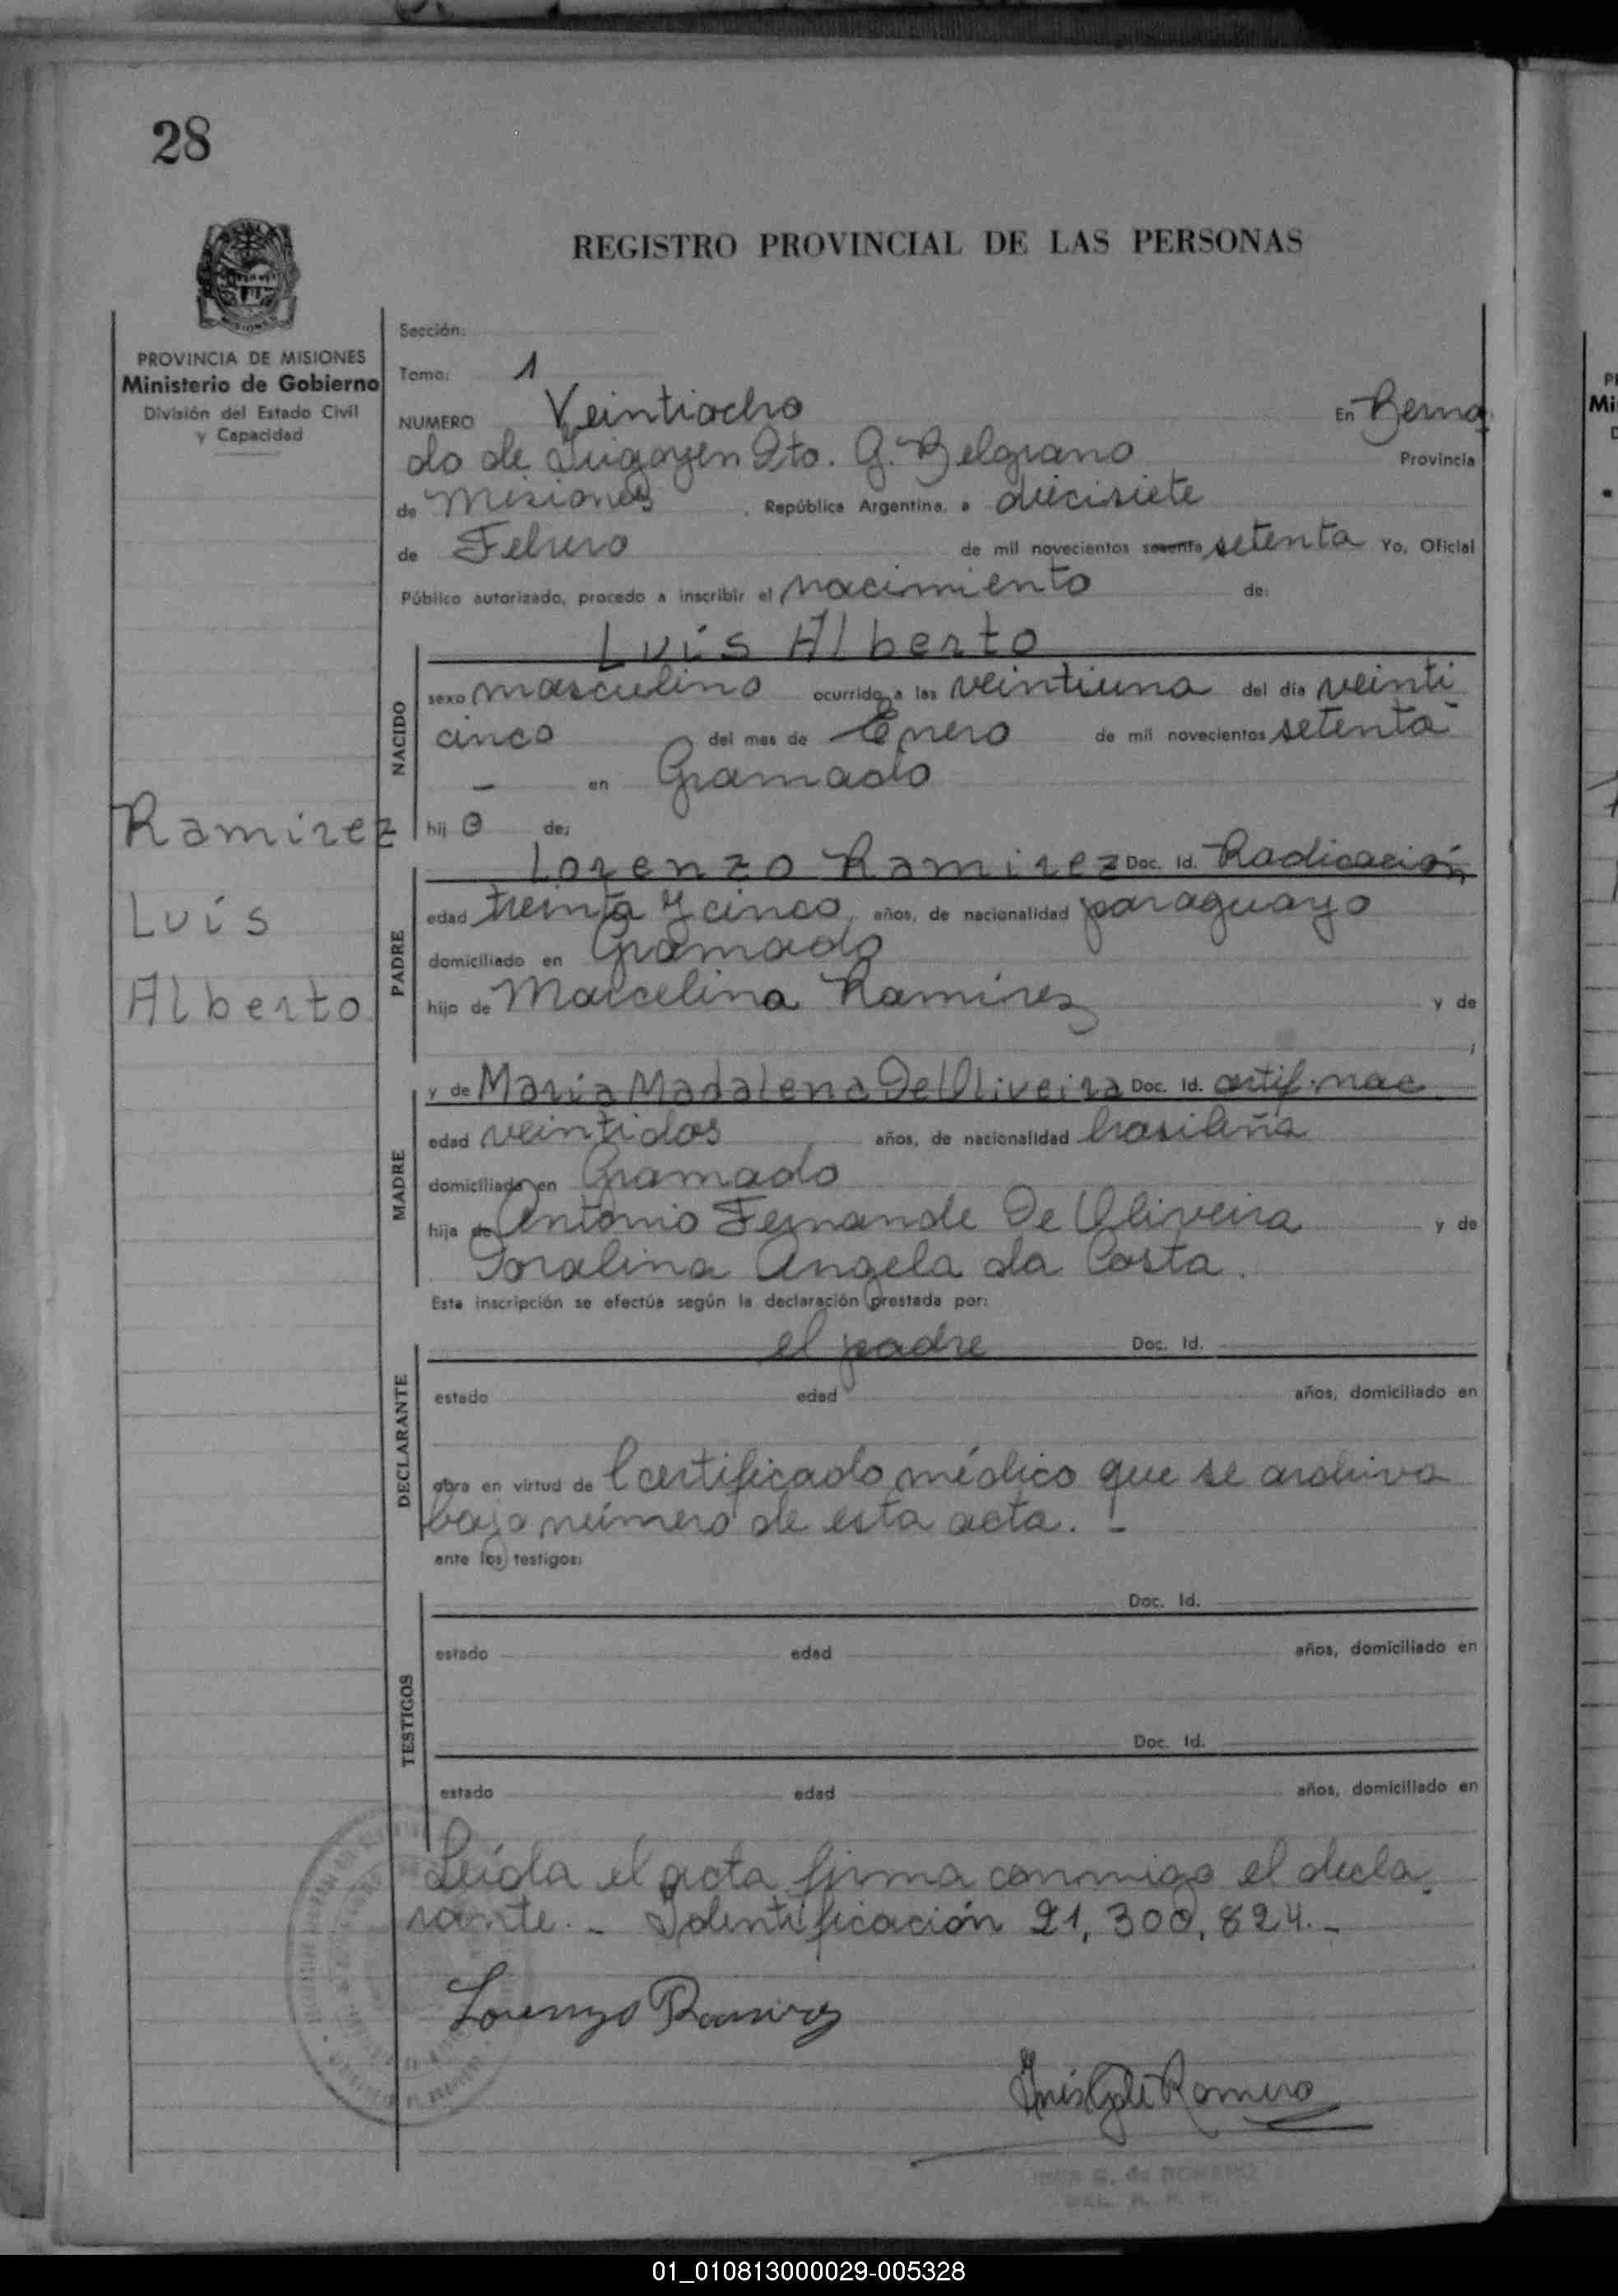 28
REGISTRO PROVINCIAL DE LAS PERSONAS
PROVINCIA DE MISIONES
Ministerio de Gobierno
División del Estado Civil
y Capacidad
Sección:
Tomo: 1
NUMERO Veintiocho En Berna
do de Irigoyen Dto. G. Belgrano Provincia
de Misiones, República Argentina, a diecisiete
de Febrero de mil novecientos sesenta setenta Yo, Oficial
Público autorizado, procedo a inscribir el nacimiento de:
Luis Alberto
NACIDO
sexo masculino ocurrido a las veintiuna del día veinti
cinco del mes de Enero de mil novecientos setenta
- en Gramado
hij o de:
Ramirez
Luis
Alberto
Lorenzo Ramirez Doc. Id. Radicación
PADRE
edad treinta y cinco años, de nacionalidad paraguayo
domiciliado en Gramado
hijo de Marcelina Ramirez y de
;
y de Maria Madalena De Oliveira Doc. Id. certif. nac
MADRE
edad veintidos años, de nacionalidad brasileña
domiciliada en Gramado
hija de Antonio Fernande De Oliveira y de
Doralina Angela da Costa.
Esta inscripción se efectúa según la declaración prestada por:
el padre Doc. Id.
DECLARANTE
estado edad años, domiciliado en
obra en virtud de Certificado médico que se archiva
bajo número de esta acta. -
ante los testigos:
TESTIGOS
Doc. Id.
estado edad años, domiciliado en
Doc. Id.
estado edad años, domiciliado en
Leída el acta firma conmigo el decla
rante. - Identificación 21,300,824. -
Lorenzo Ramirez
Inés G de Romero
INES G. de ROMERO
DEL. R. P. P.
01_010813000029-005328